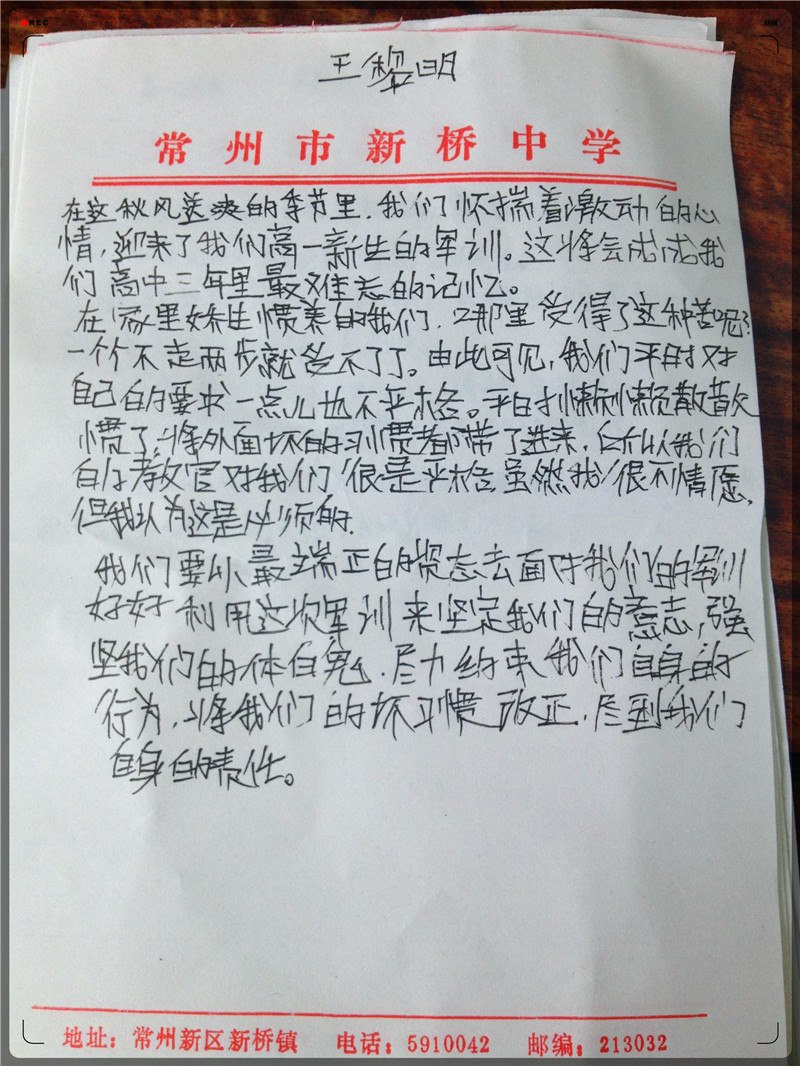 REC
王黎明
常州市新桥中学
在这秋风送爽的季节里，我们怀揣着激动的心
情，迎来了我们高一新生的军训。这将会成成我
们高中三年里最难忘的记忆。
在家里娇生惯养的我们，哪里受得了这种苦呢？
一个个不走两步就受不了了。由此可见，我们平时对
自己的要求一点儿也不严格。平时懒懒散散
惯了，将外面坏的习惯都带了进来，所以我们
的教官对我们很是严格虽然我很不情愿，
但我认为这是必须的.
我们要以最端正的态去面对我们的军训
好好利用这次军训来坚定我们的意志，强
坚我们的体魄，尽力约束我们自身的
行为，将我们的坏习惯改正，尽到我们
自身的责任。
地址：常州新区新桥镇 电话：5910042 邮编：213032